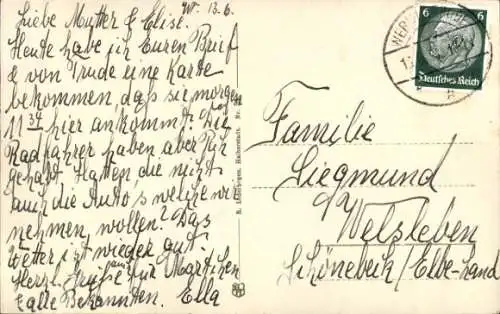 W. 13.6.
Liebe Mutter & Elise.
Heute habe ich Euren Brief
& von Trude eine Karte
bekommen, daß sie morgen
11 34 hier ankommt. Die
Radfahrer haben aber
gehabt. Hatten die nicht
auch die Auto's
nehmen, wollen? Das
Wetter ist wieder gut.
Herzl. Grüße auch für
& alle Bekannten. Ella
6
6
Deutsches Reich
WERNI
Familie
Siegmund
Welsleben
Schönebeck/Elbe-Land